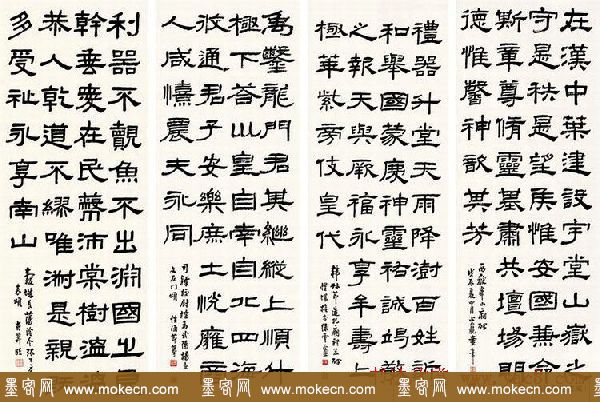 在漢中葉建設宇堂山嶽
守是秩是望矦惟安國兼命
斯章尊脩靈基肅共壇場明
德惟馨神歆其芳
禮器升堂天雨降澍百姓訢
和舉國蒙慶神靈祐誠竭敬
之報天與厥福永享牟壽上
極華紫旁伎皇代
禹鑿龍門君其繼縱上順斗
極下荅皇自南自北四海
攸通君子安樂庶士悅雍商
人咸憘農夫永同
利器不覿魚不出淵國之良
幹垂愛在民蔽沛棠樹溫溫
恭人乾道不繆唯淑是親既
多受祉永享南山
墨客网 www.mokecn.com 墨客网 www.mokecn.com 墨客网 www.mokecn.com 墨客网